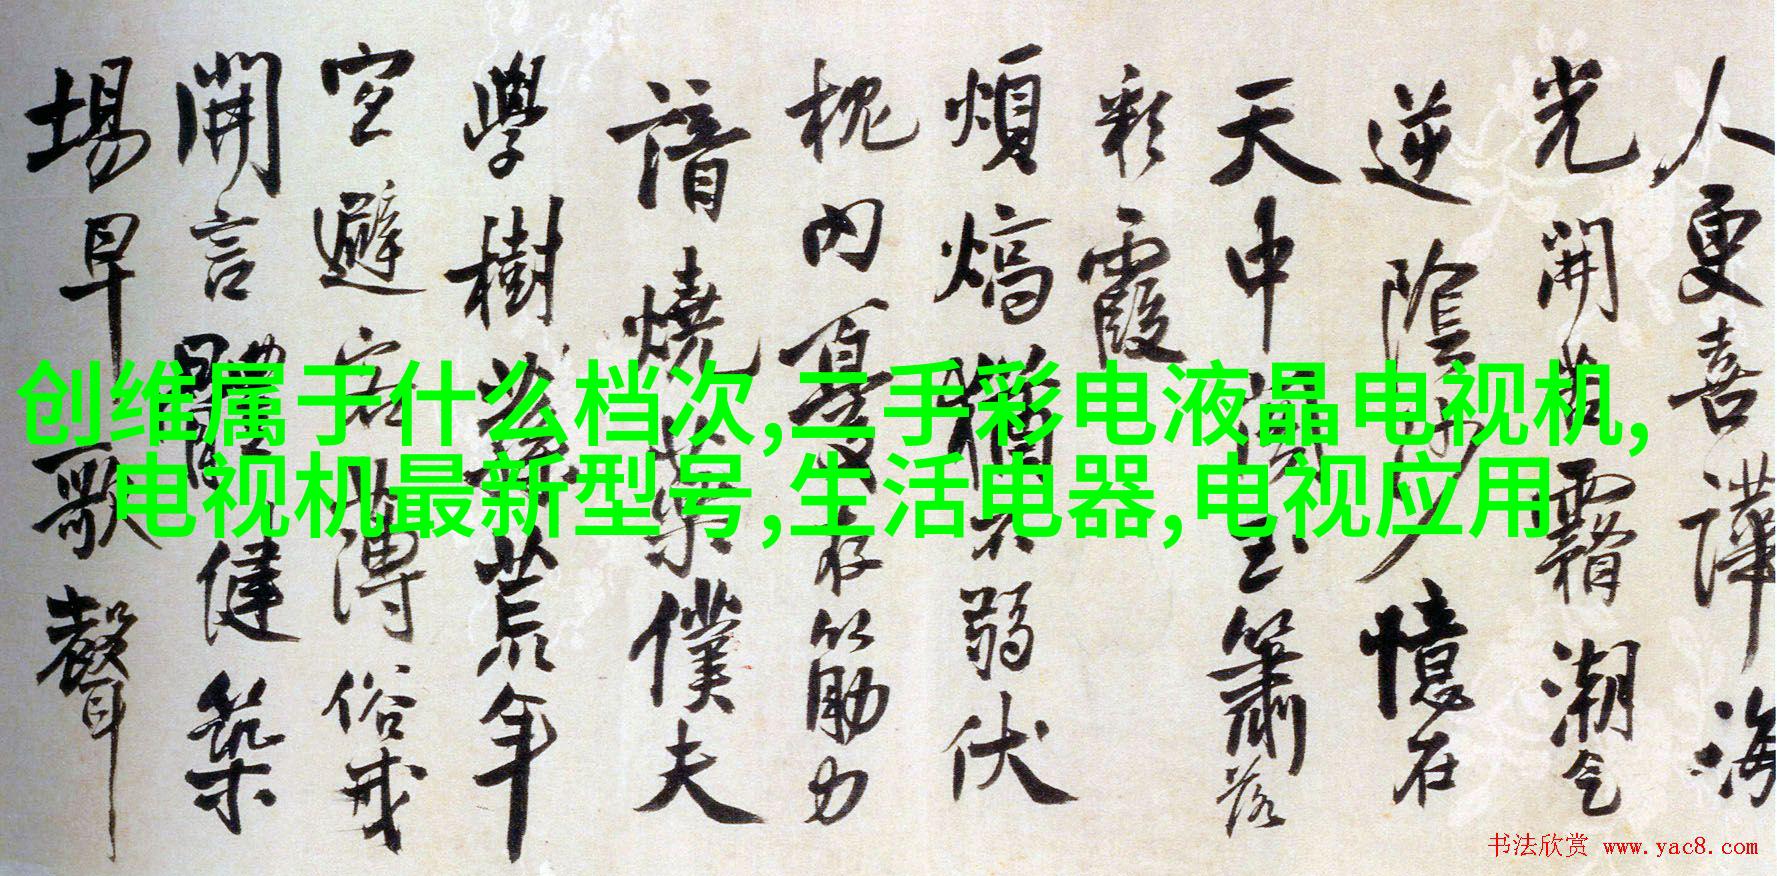 创维属于什么档次,二手彩电液晶电视机,
电视机最新型号,生活电器,电视应用
人更喜譁海
光開萬霜潮气
逆陰妙憶在
天中闊玉簫落
彩霞
煩熇猶不弱伏
枕内真存筋力
諳燒藥僕夫
學樹荒年
空避客薄俗或
開言健築
場早歌聲
书法欣赏 www.yac8.com